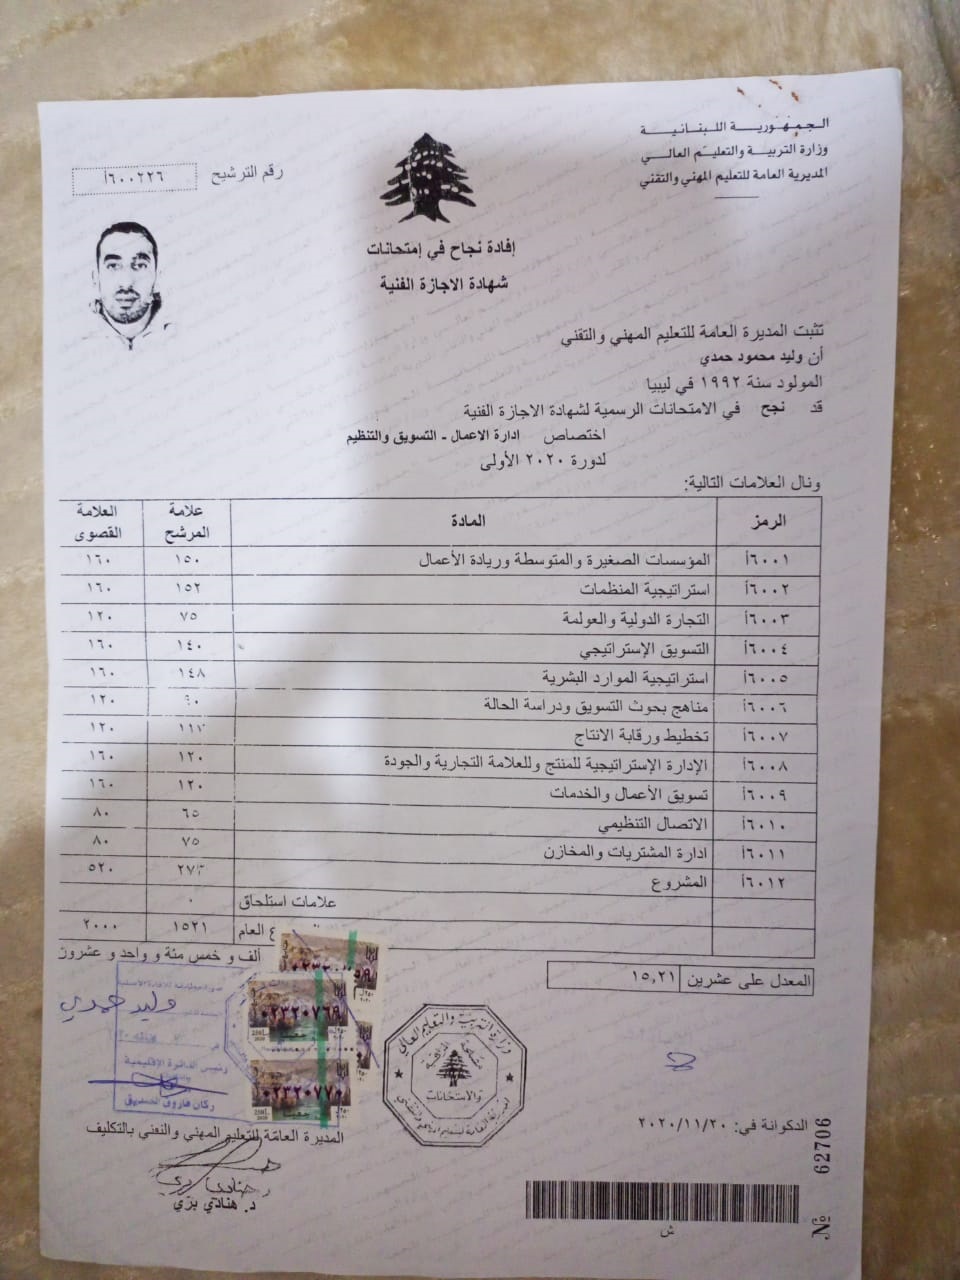 الجمهورية اللبنانية
وزارة التربية والتعليم العالي
المديرية العامة للتعليم المهني والتقني
رقم الترشيح ٦٠٠٢٢٦أ
إفادة نجاح في إمتحانات
شهادة الاجازة الفنية
تثبت المديرة العامة للتعليم المهني والتقني
أن وليد محمود حمدي
المولود سنة ١٩٩٢ في ليبيا
قد نجح في الامتحانات الرسمية لشهادة الاجازة الفنية
اختصاص ادارة الاعمال - التسويق والتنظيم
لدورة ٢٠٢٠ الأولى
ونال العلامات التالية:
الرمز المادة علامة المرشح العلامة القصوى
٦٠٠١أ المؤسسات الصغيرة والمتوسطة وريادة الأعمال ١٥٠ ١٦٠
٦٠٠٢أ استراتيجية المنظمات ١٥٢ ١٦٠
٦٠٠٣أ التجارة الدولية والعولمة ٧٥ ١٢٠
٦٠٠٤أ التسويق الإستراتيجي ١٤٠ ١٦٠
٦٠٠٥أ استراتيجية الموارد البشرية ١٤٨ ١٦٠
٦٠٠٦أ مناهج بحوث التسويق ودراسة الحالة ١٢٠
٦٠٠٧أ تخطيط ورقابة الانتاج ١٢٠
٦٠٠٨أ الإدارة الإستراتيجية للمنتج وللعلامة التجارية والجودة ١٢٠ ١٦٠
٦٠٠٩أ تسويق الأعمال والخدمات ١٢٠ ١٦٠
٦٠١٠أ الاتصال التنظيمي ٦٥ ٨٠
٦٠١١أ ادارة المشتريات والمخازن ٧٥ ٨٠
٦٠١٢أ المشروع ٥٢٠
علامات استلحاق ٠
ع العام ١٥٢١ ٢٠٠٠
ألف و خمس مئة و واحد و عشرون
المعدل على عشرين ١٥,٢١
وليد حمدي
رئيس الدائرة الإقليمية
ركان فاروق الصديق
٠٢٣٢٠٧٦٩
٠٢٣٢٠٧٧٠
وزارة التربية والتعليم العالي
والامتحانات
الدكوانة في: ٢٠٢٠/١١/٢٠
المديرة العامة للتعليم المهني والتقني بالتكليف
د. هنادي بري
Nº 62706
ش